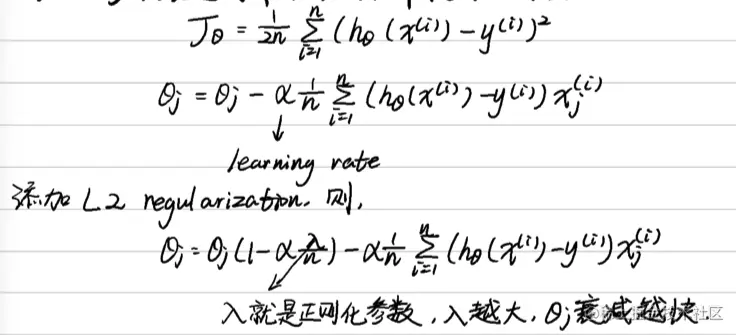 J_θ = \frac{1}{2n} \sum_{i=1}^{n} (h_θ(x^{(i)}) - y^{(i)})^2
θ_j = θ_j - α \frac{1}{n} \sum_{i=1}^{n} (h_θ(x^{(i)}) - y^{(i)}) x_j^{(i)}
learning rate
添加 L2 regularization. 则,
θ_j = θ_j (1 - α \frac{λ}{n}) - α \frac{1}{n} \sum_{i=1}^{n} (h_θ(x^{(i)}) - y^{(i)}) x_j^{(i)}
λ就是正则化参数, λ越大, θ_j 衰减越快